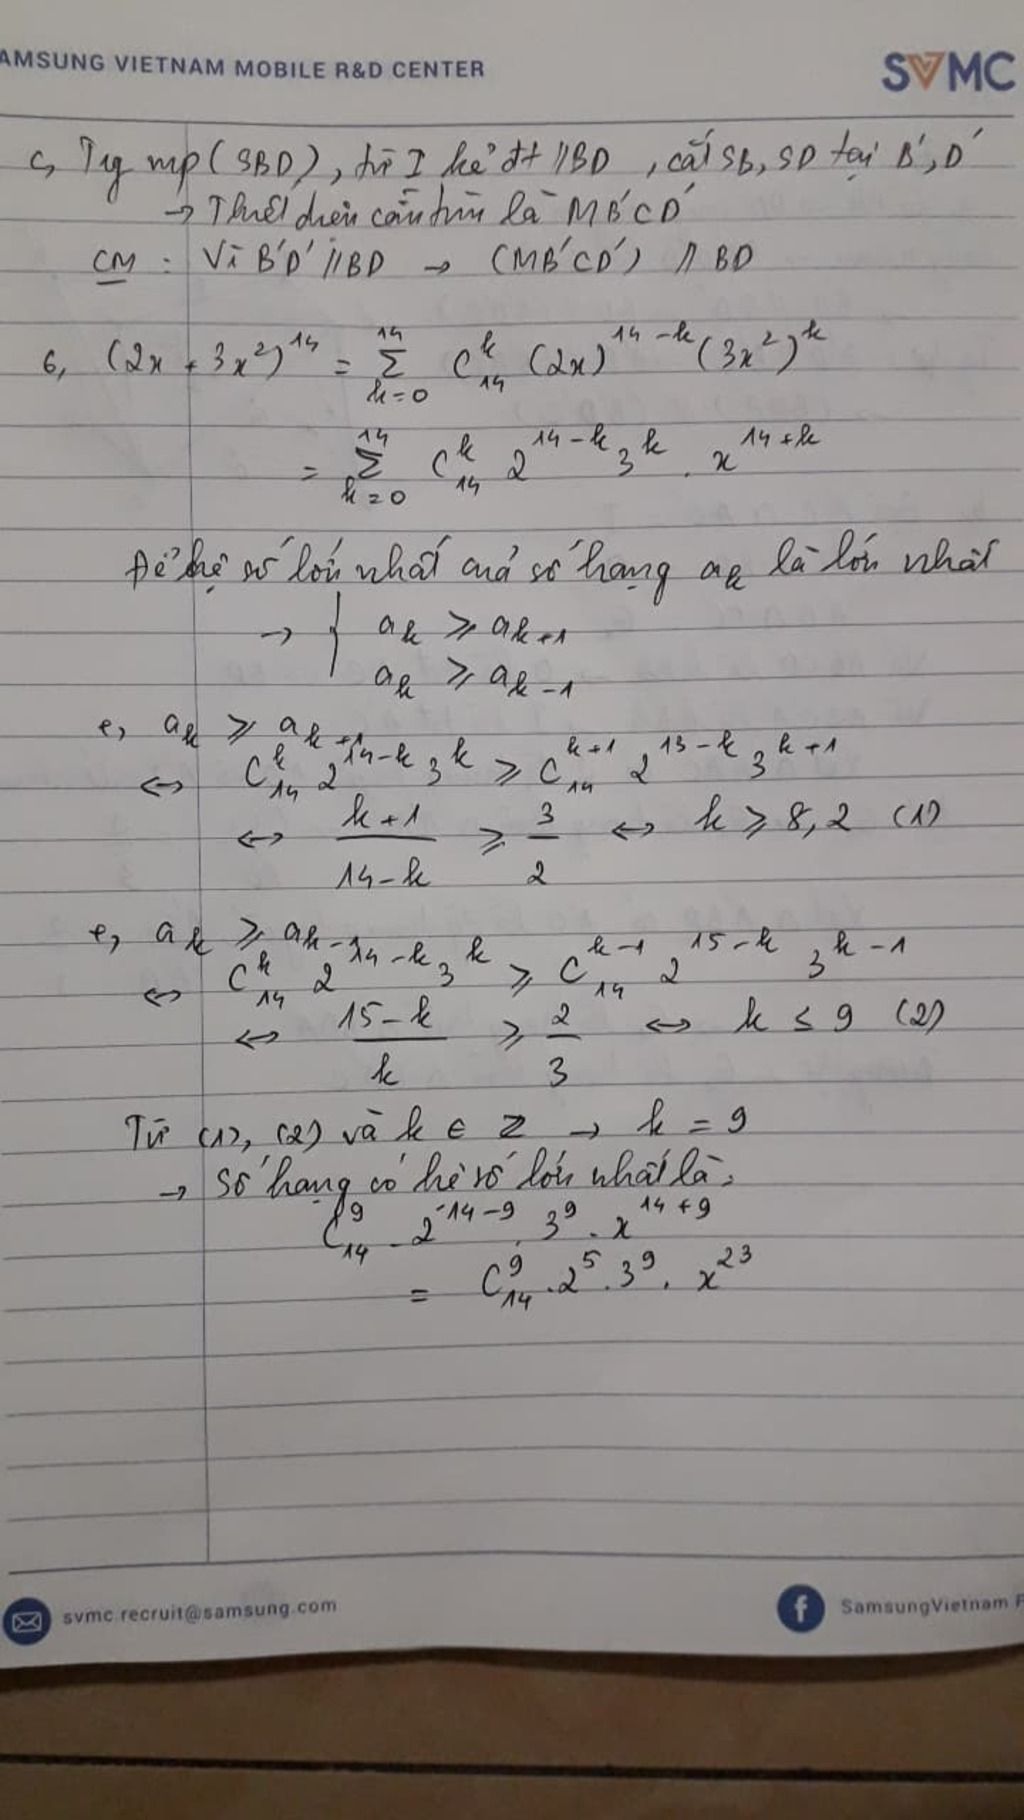 AMSUNG VIETNAM MOBILE R&D CENTER
SVMC
c, Trg mp(SBD), từ I kẻ đt //BD, cắt SB, SD tại B', D'
→ Thiết diện cần tìm là MB'CD'
CM : Vì B'D' // BD → (MB'CD') // BD
6, (2x + 3x²)¹⁴ = Σ_{k=0}^{14} C_{14}^{k} (2x)^{14-k} (3x²)^{k}
= Σ_{k=0}^{14} C_{14}^{k} 2^{14-k} 3^{k} . x^{14+k}
Để hệ số lớn nhất của số hạng a_k là lớn nhất
→ { a_k ⩾ a_{k+1}
a_k ⩾ a_{k-1}
+, a_k ⩾ a_{k+1}
⇔ C_{14}^{k} 2^{14-k} 3^{k} ⩾ C_{14}^{k+1} 2^{13-k} 3^{k+1}
⇔ (k+1)/(14-k) ⩾ 3/2 ⇔ k ⩾ 8,2 (1)
+, a_k ⩾ a_{k-1}
⇔ C_{14}^{k} 2^{14-k} 3^{k} ⩾ C_{14}^{k-1} 2^{15-k} 3^{k-1}
⇔ (15-k)/k ⩾ 2/3 ⇔ k ≤ 9 (2)
Từ (1), (2) và k ∈ Z → k = 9
→ Số hạng có hệ số lớn nhất là:
C_{14}^{9} . 2^{14-9} . 3^{9} . x^{14+9}
= C_{14}^{9} . 2^{5} . 3^{9} . x^{23}
svmc.recruit@samsung.com
f SamsungVietnam